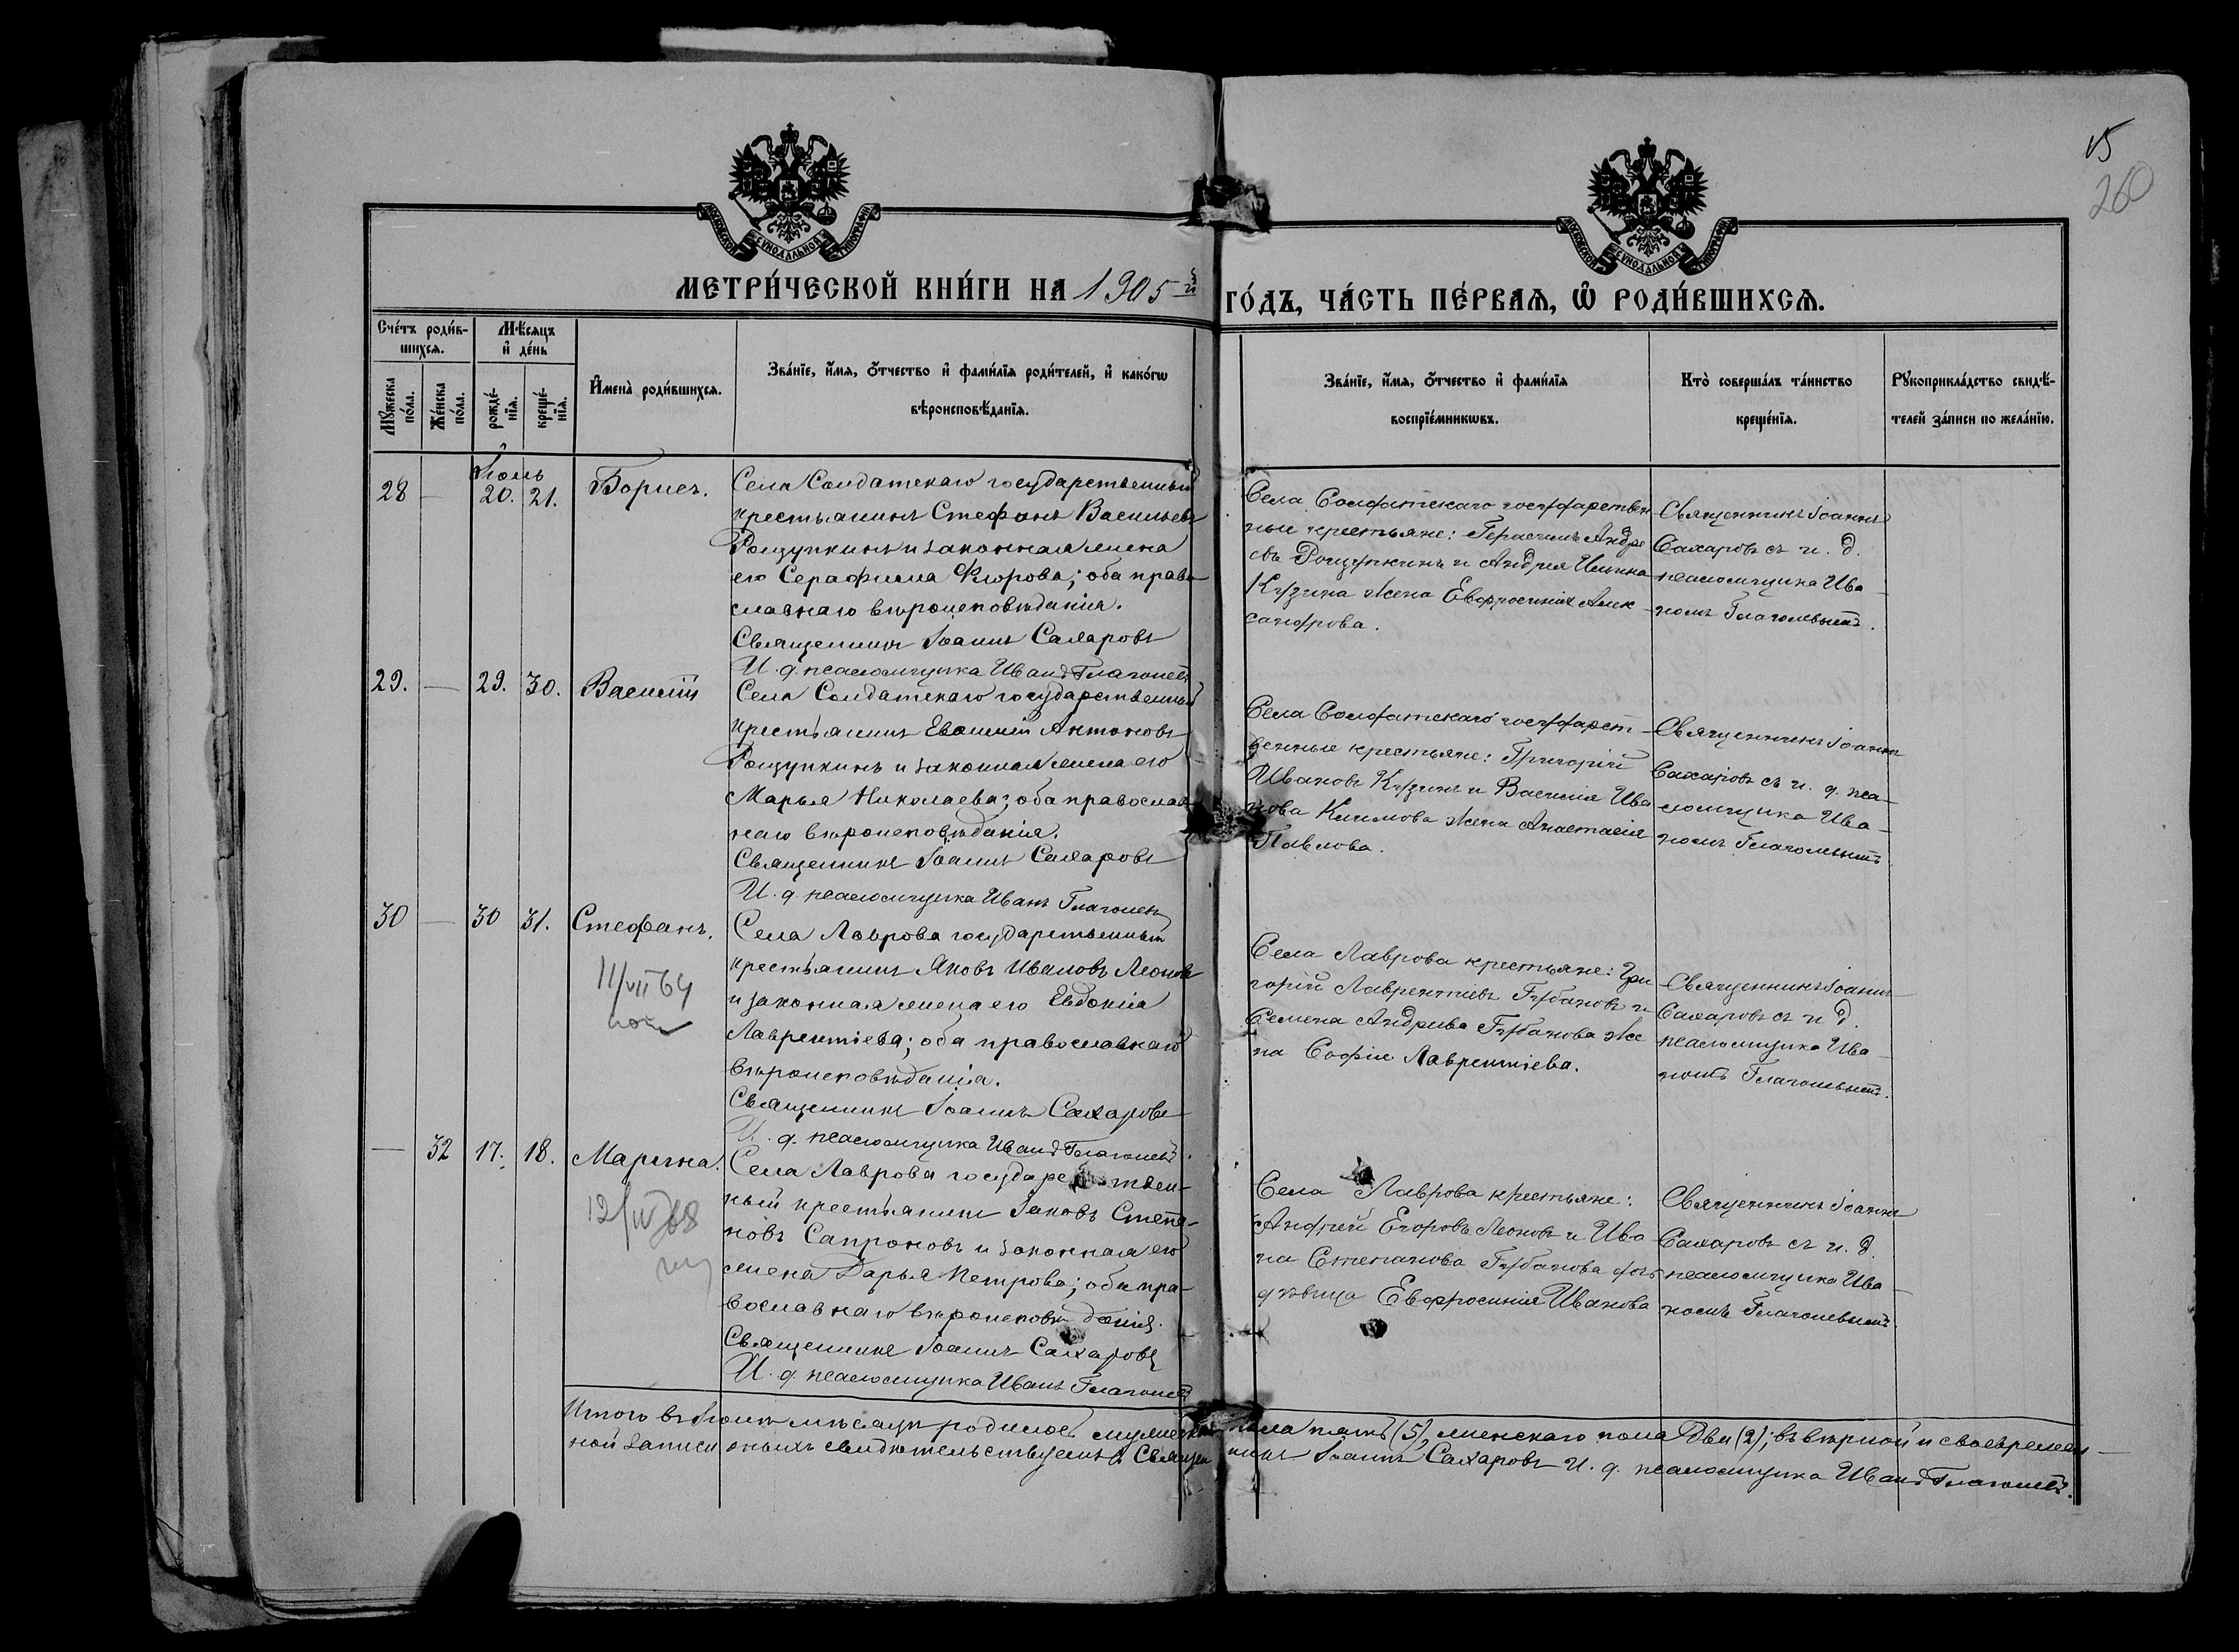 15
260
МОСКОВСКОЙ СѴНОДАЛЬНОЙ ТИПОГРАФІИ
МОСКОВСКОЙ СѴНОДАЛЬНОЙ ТИПОГРАФІИ
МЕТРИ́ЧЕСКОЙ КНИ́ГИ НА 1905-й
ГО́ДЪ, ЧА́СТЬ ПЕ́РВАѦ, Ѽ РОДИ́ВШИХСѦ.
Сче́тъ роди́в-
шихсѧ.
Мѣ́сѧцъ
и҆ де́нь
Мꙋ́жеска по́ла.
Же́нска по́ла.
рожде́-
нїѧ.
креще́-
нїѧ.
И҆мена̀ роди́вшихсѧ.
Зва́нїе, и҆́мѧ, ѻ҆́тчество и҆ фами́лїѧ роди́телей, и҆ како́гѡ
вѣроисповѣ́данїѧ.
Зва́нїе, и҆́мѧ, ѻ҆́тчество и҆ фами́лїѧ
воспрїе́мникѡвъ.
Кто̀ соверша́лъ та́инство
креще́нїѧ.
Рꙋкоприкла́дство свидѣ́-
телей за́писи по жела́нїю.
Іюль
28 — 20. 21. Борисъ.
Села Солдатскаго государственный
крестьянинъ Стефанъ Васильевъ
Рощупкинъ и законная жена
его Серафима Флорова; оба право-
славнаго вѣроисповѣданія.
Священникъ Іоаннъ Сахаровъ
И. д. псаломщика Иванъ Глаголевъ
Села Солдатскаго государствен
ные крестьяне: Герасимъ Андре
евъ Рощупкинъ и Андрея Ильина
Кузина жена Евфросинія Алек-
сандрова.
Священникъ Іоаннъ
Сахаровъ съ и. д.
псаломщика Ива-
номъ Глаголевымъ.
29. — 29. 30. Василій
Села Солдатскаго государственный
крестьянинъ Евѳимій Антоновъ
Рощупкинъ и законная жена его
Марья Николаева; оба православ-
наго вѣроисповѣданія.
Священникъ Іоаннъ Сахаровъ
И. д. псаломщика Иванъ Глаголевъ
Села Солдатскаго государст-
венные крестьяне: Григорій
Ивановъ Кузинъ и Василія Ива
нова Климова жена Анастасія
Павлова.
Священникъ Іоаннъ
Сахаровъ съ и. д. пса-
ломщика Ива-
номъ Глаголевымъ
30 — 30 31. Стефанъ.
11/VII 64
Села Лаврова государственный
крестьянинъ Яковъ Ивановъ Леоновъ
и законная жена его Евдокія
Лаврентіева; оба православнаго
вѣроисповѣданія.
Священникъ Іоаннъ Сахаровъ
И. д. псаломщика Иванъ Глаголевъ.
Села Лаврова крестьяне: Гри
горій Лаврентіевъ Губановъ и
Семена Андреева Губанова же
на Софія Лаврентіева.
Священникъ Іоаннъ
Сахаровъ съ и д.
псаломщика Ива-
номъ Глаголевымъ.
— 32 17. 18. Марина.
Села Лаврова государственн-
ный крестьянинъ Іаковъ Степа-
новъ Сапроновъ и законная его
жена Дарья Петрова; оба пра-
вославнаго вѣроисповѣданія.
Священникъ Іоаннъ Сахаровъ
И. д. псаломщика Иванъ Глаголевъ
Села Лаврова крестьяне:
Андрей Егоровъ Леоновъ и Ива
на Степанова Губанова дочь
дѣвица Евфросинія Иванова
Священникъ Іоаннъ
Сахаровъ съ и. д.
псаломщика Ива-
номъ Глаголевымъ.
Итого въ Іюлѣ мѣсяцѣ родилось мужескаго пола пять (5), женскаго пола двѣ (2); въ вѣрной и своевремен-
ной записи оныхъ свидѣтельствуемъ: Священникъ Іоаннъ Сахаровъ И. д. псаломщика Иванъ Глаголевъ.